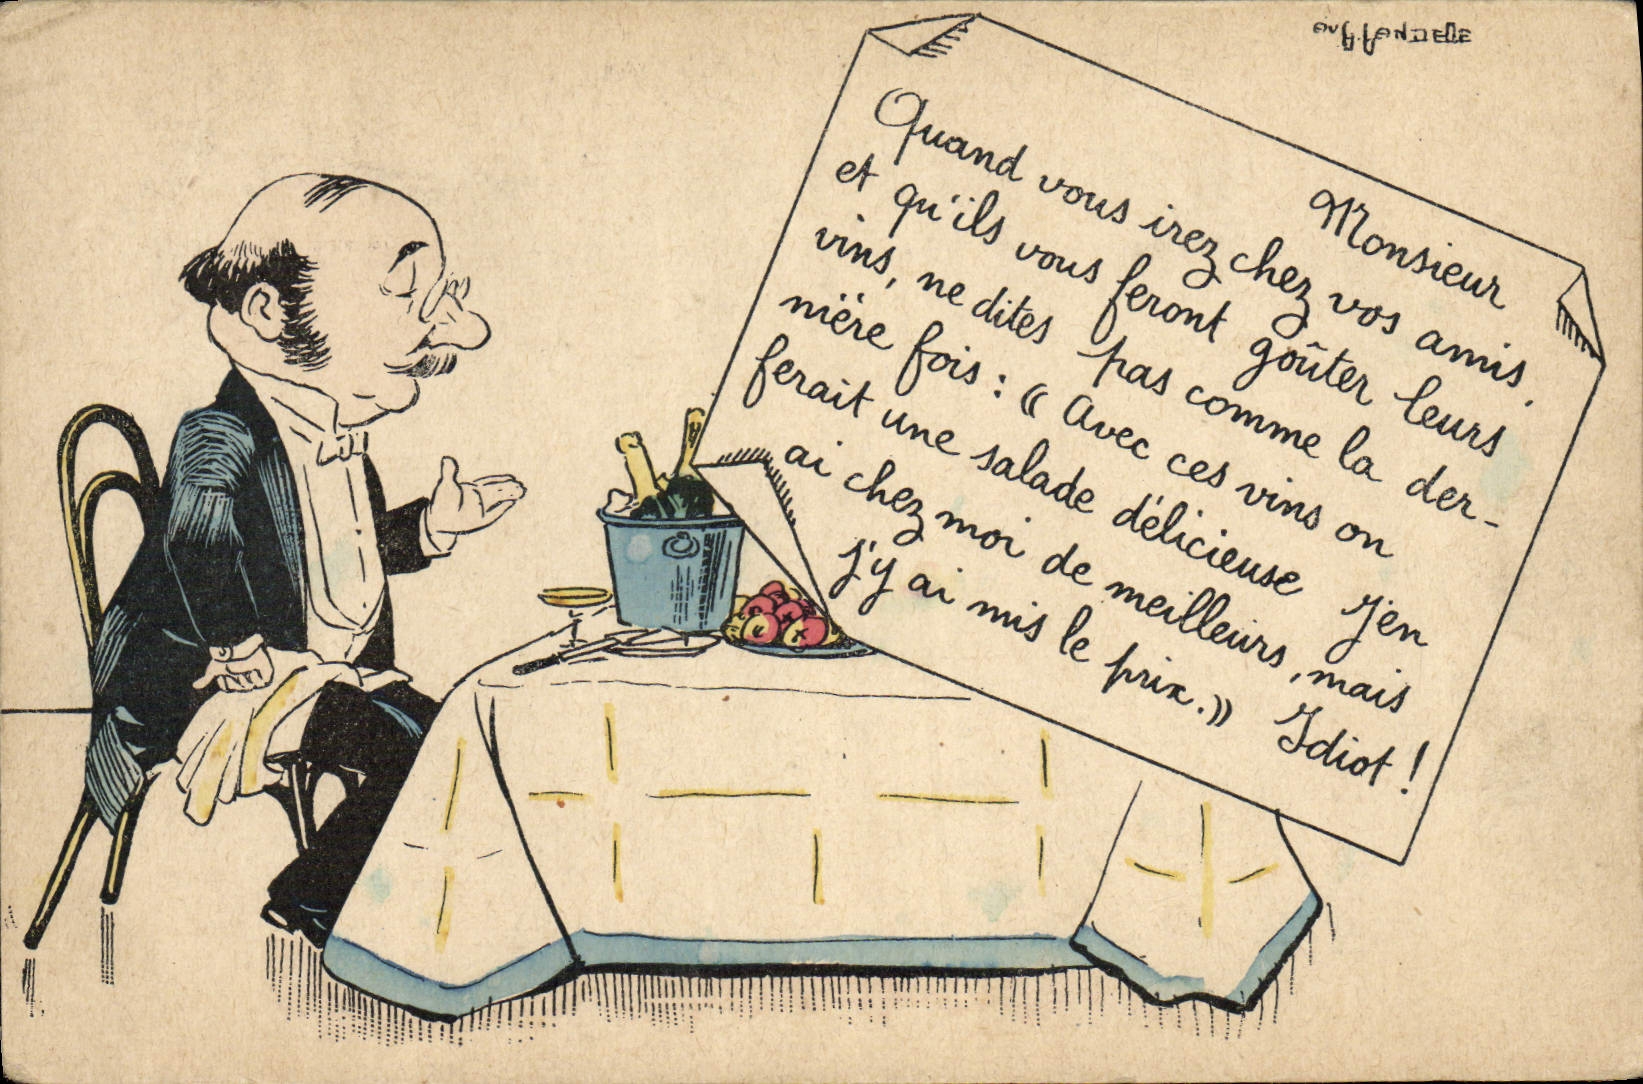 Monsieur
Quand vous irez chez vos amis.
et qu'ils vous feront goûter leurs
vins, ne dites pas comme la der-
nière fois : « Avec ces vins on
ferait une salade délicieuse J'en
ai chez moi de meilleurs, mais
j'y ai mis le prix. » Idiot !